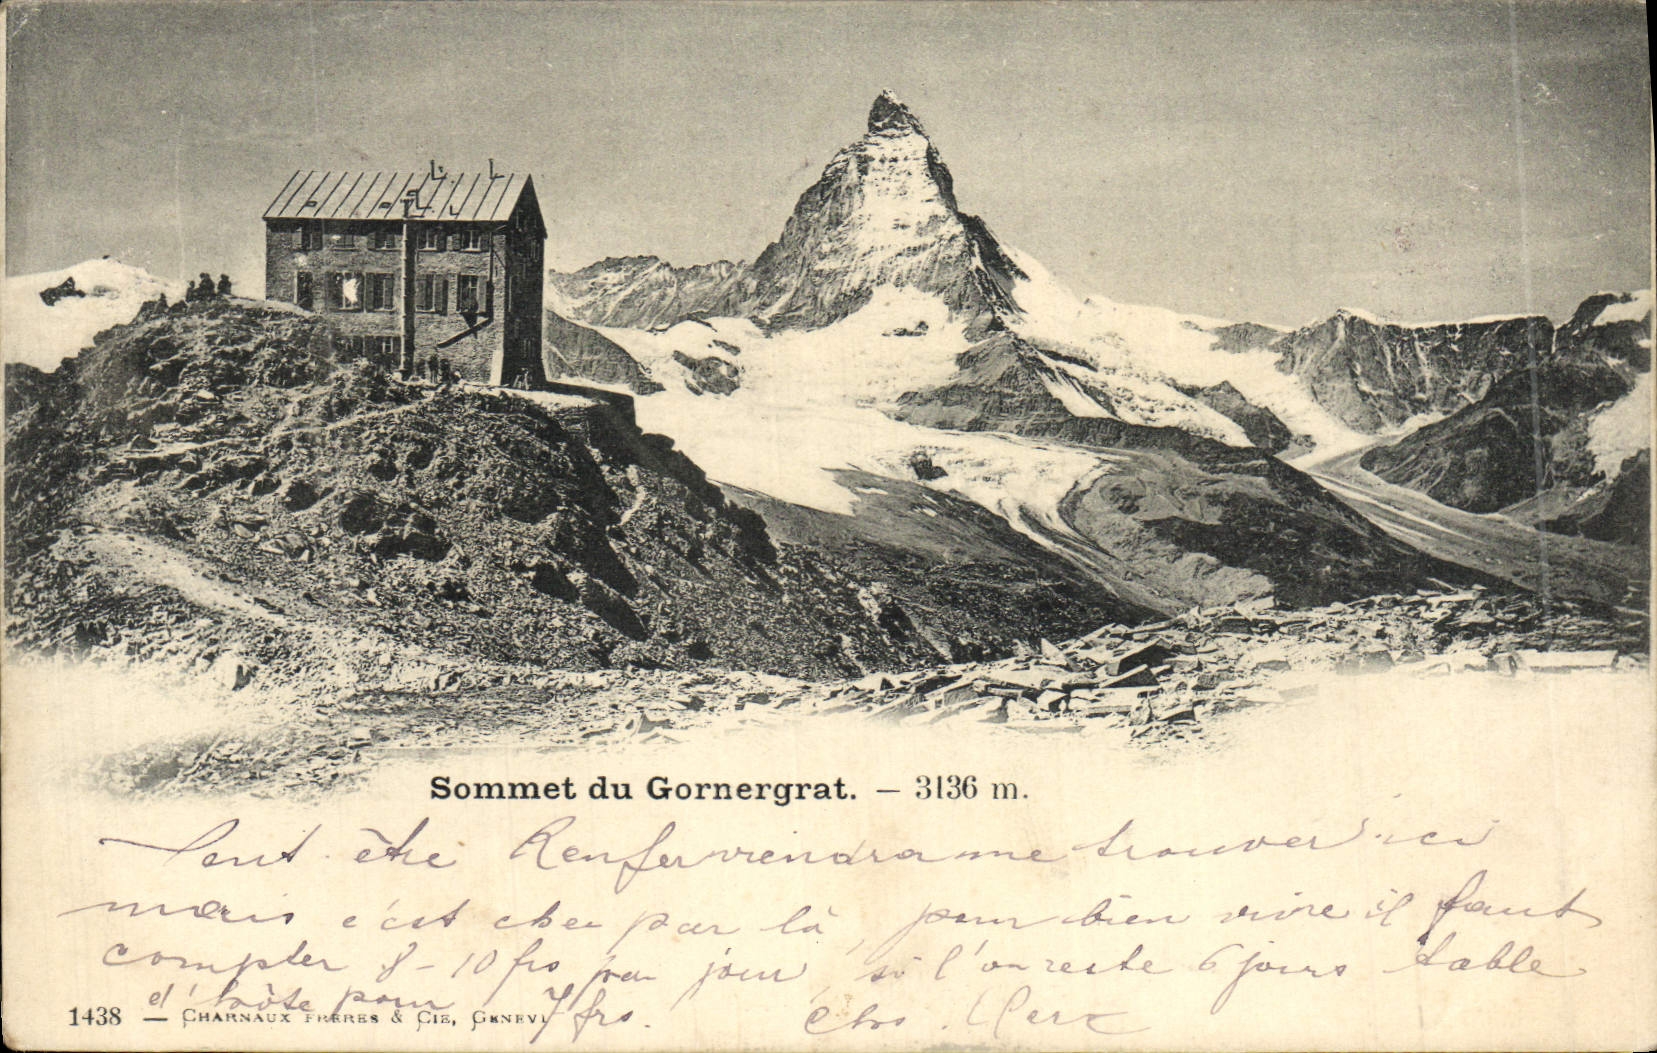 Sommet du Gornergrat. — 3136 m.
Peut être Renfer viendra me trouver ici
mais c'est cher par là, pour bien vivre il faut
compter 8 - 10 frs par jour, si l'on reste 6 jours table
d'hôte pour 7 frs.
1438 — CHARNAUX FRÈRES & CIE, GENÈVE